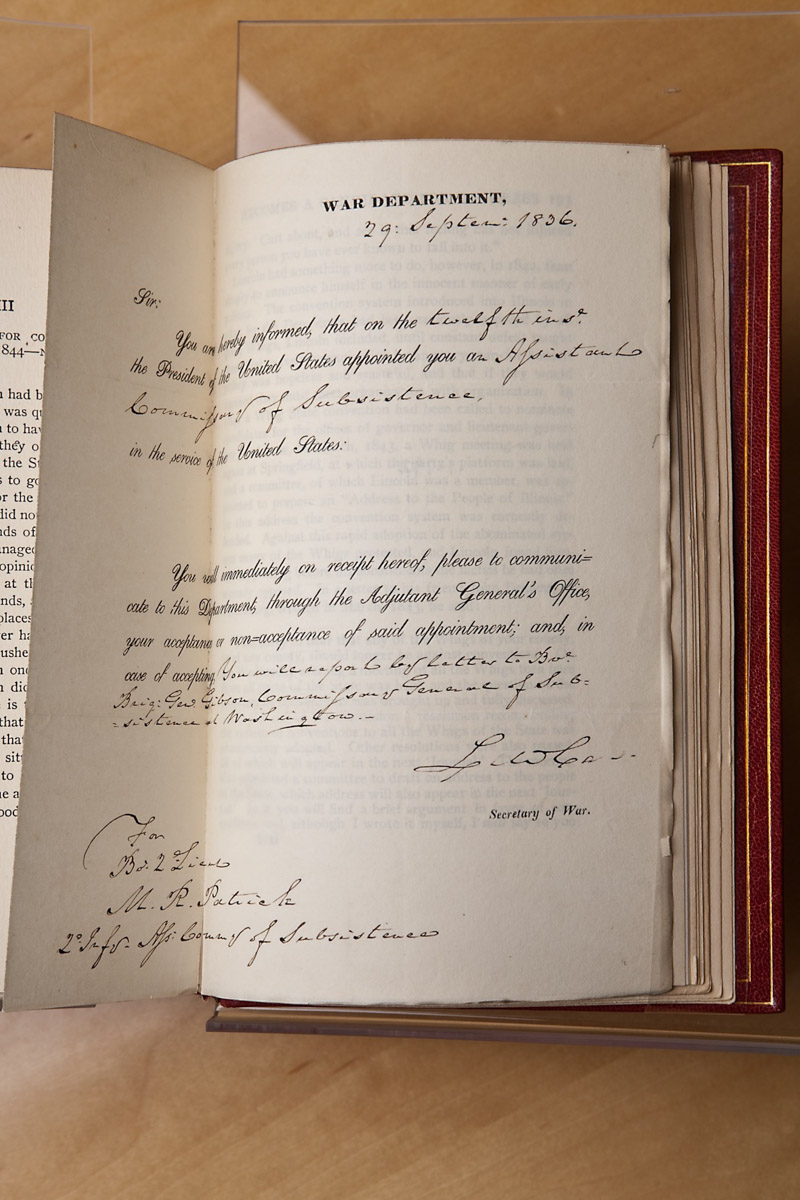 III
FOR CO
1844—
had b
was qu
to hav
they o
the S
s to go
or the
did no
nds of
anaged
opinio
at th
nds,
places
er ha
ushe
one
did
is
that
that
sit
to
e a
ood
WAR DEPARTMENT,
29: Septem: 1836.
Sir:
You are hereby informed, that on the twelfth inst.
the President of the United States appointed you an Assistant
Commissary of Subsistence,
in the service of the United States:
You will immediately on receipt hereof, please to communi=
cate to this Department, through the Adjutant General's Office,
your acceptance or non=acceptance of said appointment; and, in
case of accepting, You will report by letter to Bvt.
Brig: Gen. Gibson, Commissary General of Sub-
-sistence at Washington.-
Lew Cass
Secretary of War.
For
Bt. 2 Lieut
M. R. Patrick
2d. Infy. Ass: Commy of Subsistence